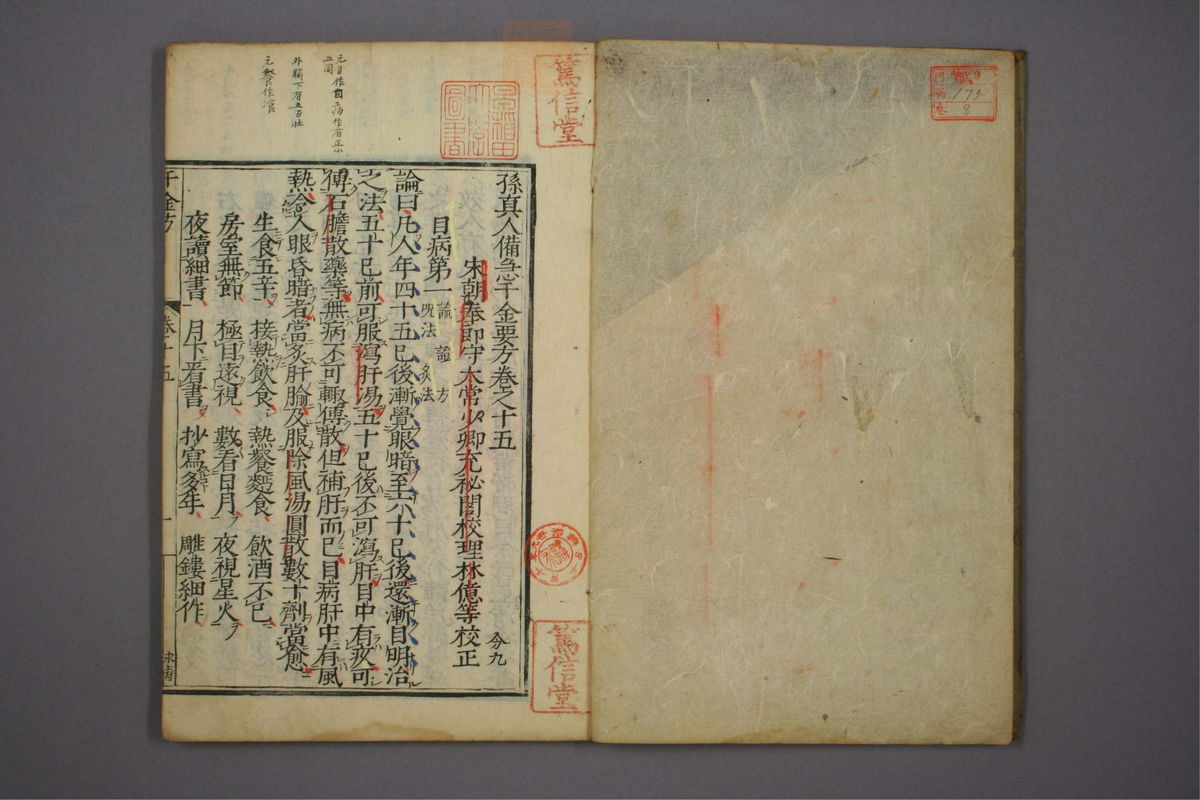 175
8
篤信堂
篤信堂
孫真人備急千金要方卷之十五
分九
宋朝奉郎守太常少卿充祕閣校理林億等校正
目病第一
論 證 方
呪法 灸法
論曰凡人年四十五已後漸覺眼暗至六十已後還漸目明治
之法五十已前可服瀉肝湯五十已後不可瀉肝目中有疾可
傅石膽散藥等無病不可輒傅散但補肝而已目病肝中有風
熱令人眼昏暗者當灸肝腧及服除風湯圓散數十劑當愈
生食五辛 接熱飲食 熱飡麪食 飲酒不已
房室無節 極目遠視 數看日月 夜視星火
夜讀細書 月下看書 抄寫多年 雕鏤細作
千金方
卷十五
一
永青
元目作自 病作有正
五同
外腧下有五百壯
元餐作飡